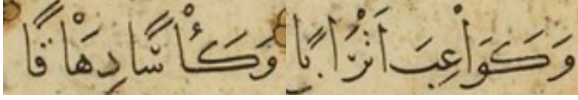 وَكَوَاعِبَ اَتْرَابًا وَكَأْسًا دِهَاقًا